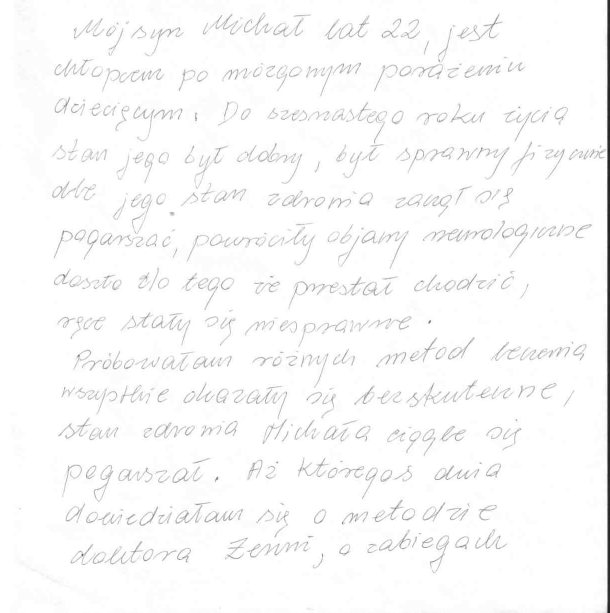 Mój syn Michał lat 22, jest
chłopcem po mózgowym porażeniu
dziecięcym. Do szesnastego roku życia
stan jego był dobry, był sprawny fizycznie
ale jego stan zdrowia zaczął się
pogarszać, powróciły objawy neurologiczne
doszło do tego że przestał chodzić,
ręce stały się niesprawne.
Próbowałam różnych metod leczenia
wszystkie okazały się bezskuteczne,
stan zdrowia Michała ciągle się
pogarszał. Aż któregoś dnia
dowiedziałam się o metodzie
doktora , o zabiegach